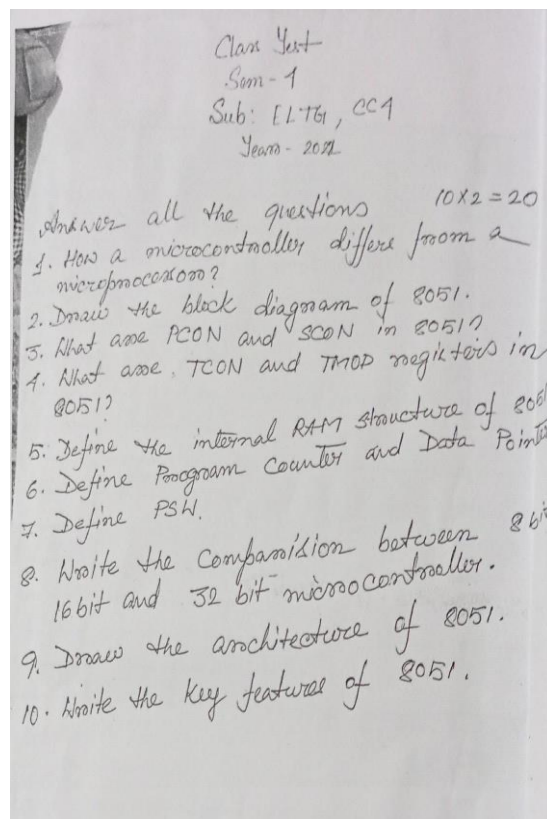 Class Test
Sem - 1
Sub: ELTG, CC1
Year - 2021
Answer all the questions 10 X 2 = 20
1. How a microcontroller differe from a
microprocessor?
2. Draw the block diagram of 8051.
3. What are PCON and SCON in 8051?
4. What are TCON and TMOD registers in
8051?
5. Define the internal RAM structure of 8051
6. Define Program Counter and Data Pointer
7. Define PSW.
8. Write the Comparision between 8 bit
16 bit and 32 bit microcontroller.
9. Draw the architecture of 8051.
10. Write the key features of 8051.